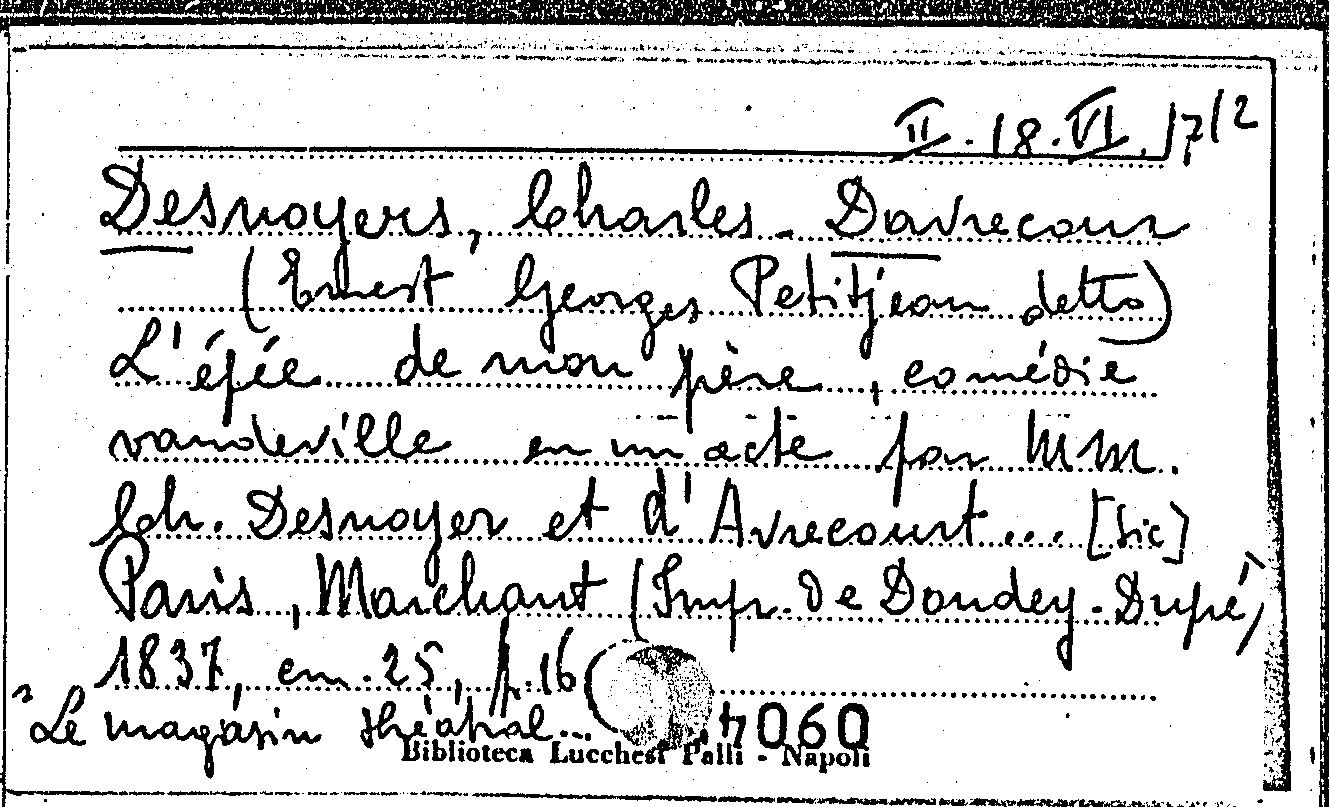 II.18.VI.17/2
Desnoyers, Charles - Davrecour
(Ernest Georges Petitjean detto)
L'épée de mon père, comédie
vaudeville en un acte par MM.
Ch. Desnoyer et d'Avrecourt... [sic]
Paris, Marchant (Impr. de Dondey-Dupé)
1837, cm. 25, p. 16
"Le magasin théatral...
4060
Biblioteca Lucchesi Palli - Napoli